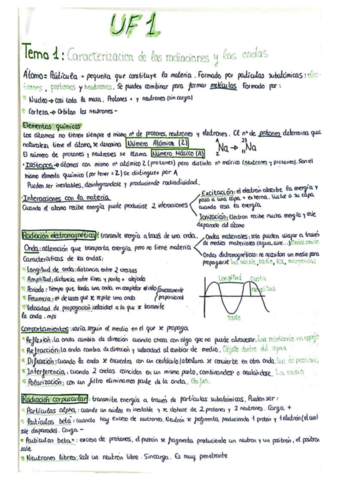 UF1
Tema 1: Caracterización de las radiaciones y las ondas
Átomo = Partícula + pequeña que constituye la materia. Formado por partículas subatómicas: elec-
trones, protones y neutrones. Se pueden combinar para formar moléculas. Formado por:
* Nucleo → casi toda la masa. Protones + y neutrones (sin carga)
* Corteza → Orbitan los neutrones -
Elementos químicos
Los átomos no tienen siempre el mismo nº de protones, neutrones y electrones. El nº de protones determina que
naturaleza tiene el átomo, se denomina Número Atómico (Z)
El número de protones y neutrones se llama Número Másico (A)
Na → Na
* Isótopos → átomos con mismo nº atómico Z (protones) pero distinto nº másico (neutrones y protones). Son el
mismo elemento químico (por tener = Z) se distingue por A
Pueden ser inestables, desintegrandose y produciendo radiactividad.
Interacciones con la materia
Cuando el átomo recibe energía puede producirse 2 interacciones
Excitación: el electrón absorbe la energía y
pasa a una capa + externa. Vuelve a su capa
cuando cede la energía.
Ionización: Electrón recibe mucha energía y sale
separado del átomo
Radiación electromagnética: transmite energía a través de una onda.
Onda: alteración que transporta energía pero no tiene materia
Ondas materiales: solo pueden viajar a través
de medios materiales (agua, aire...)
Ondas electromagnéticas: no necesitan un medio para
propagarse
Características de las ondas:
* Longitud de onda: distancia entre 2 crestas
* Amplitud: distancia entre línea y punto + alejado
* Periodo: tiempo que tarda una onda en completar el ciclo
* Frecuencia: nº de veces que se repite una onda
inversamente
proporcional
* Velocidad de propagación: velocidad a la que se transmite
la onda. m/s
longitud
cresta
valle
Comportamientos: varía según el medio en el que se propaga
* Reflexión: la onda cambia de dirección cuando choca con algo que no puede atravesar.
* Refracción: la onda cambia de dirección y velocidad al cambiar de medio. Objeto dentro del agua
* Difracción: cuando la onda se encuentra con un obstáculo/abertura se convierte en otra onda.
* Interferencia: cuando 2 ondas coinciden en un mismo punto, combinandose o anulandose.
* Polarización: con un filtro eliminamos parte de la onda. Gafas.
Radiación corpuscular: transmite energía a través de partículas subatómicas. Pueden ser:
* Partículas alpha: cuando un núcleo es inestable y se deshace de 2 protones y 2 neutrones. Carga +
* Partículas beta⁻: cuando hay exceso de neutrones. Neutrón se fragmenta, produciendo 1 protón y 1 electrón (el cual
sale disparado. Carga -
* Partículas beta⁺: exceso de protones, el protón se fragmenta produciendo un neutrón y un positrón, el positrón
sale
* Neutrones libres: Sale un neutrón libre. Sin carga. Es muy penetrante